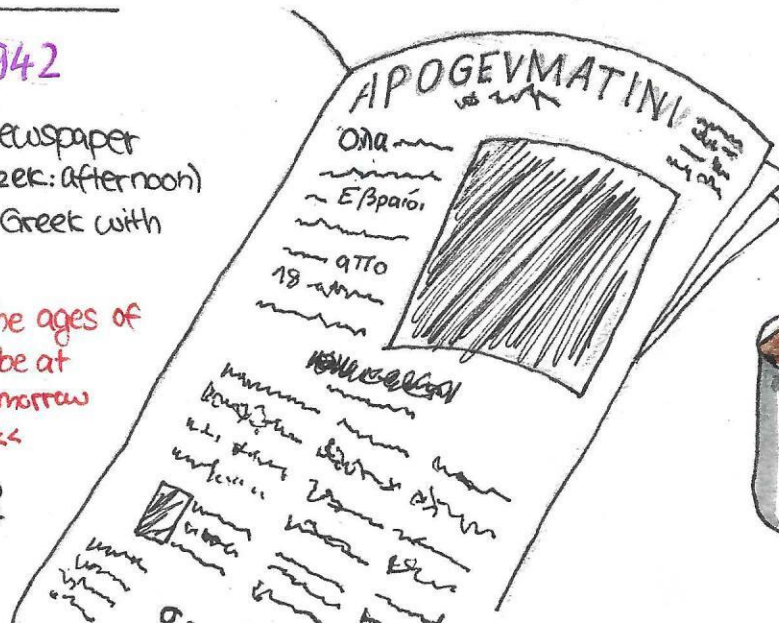 942
ewspaper
eek: afternoon)
Greek with
e ages of
be at
morrow
<<
APOGEVMATINI
Όλα
Εβραίοι
απο
18